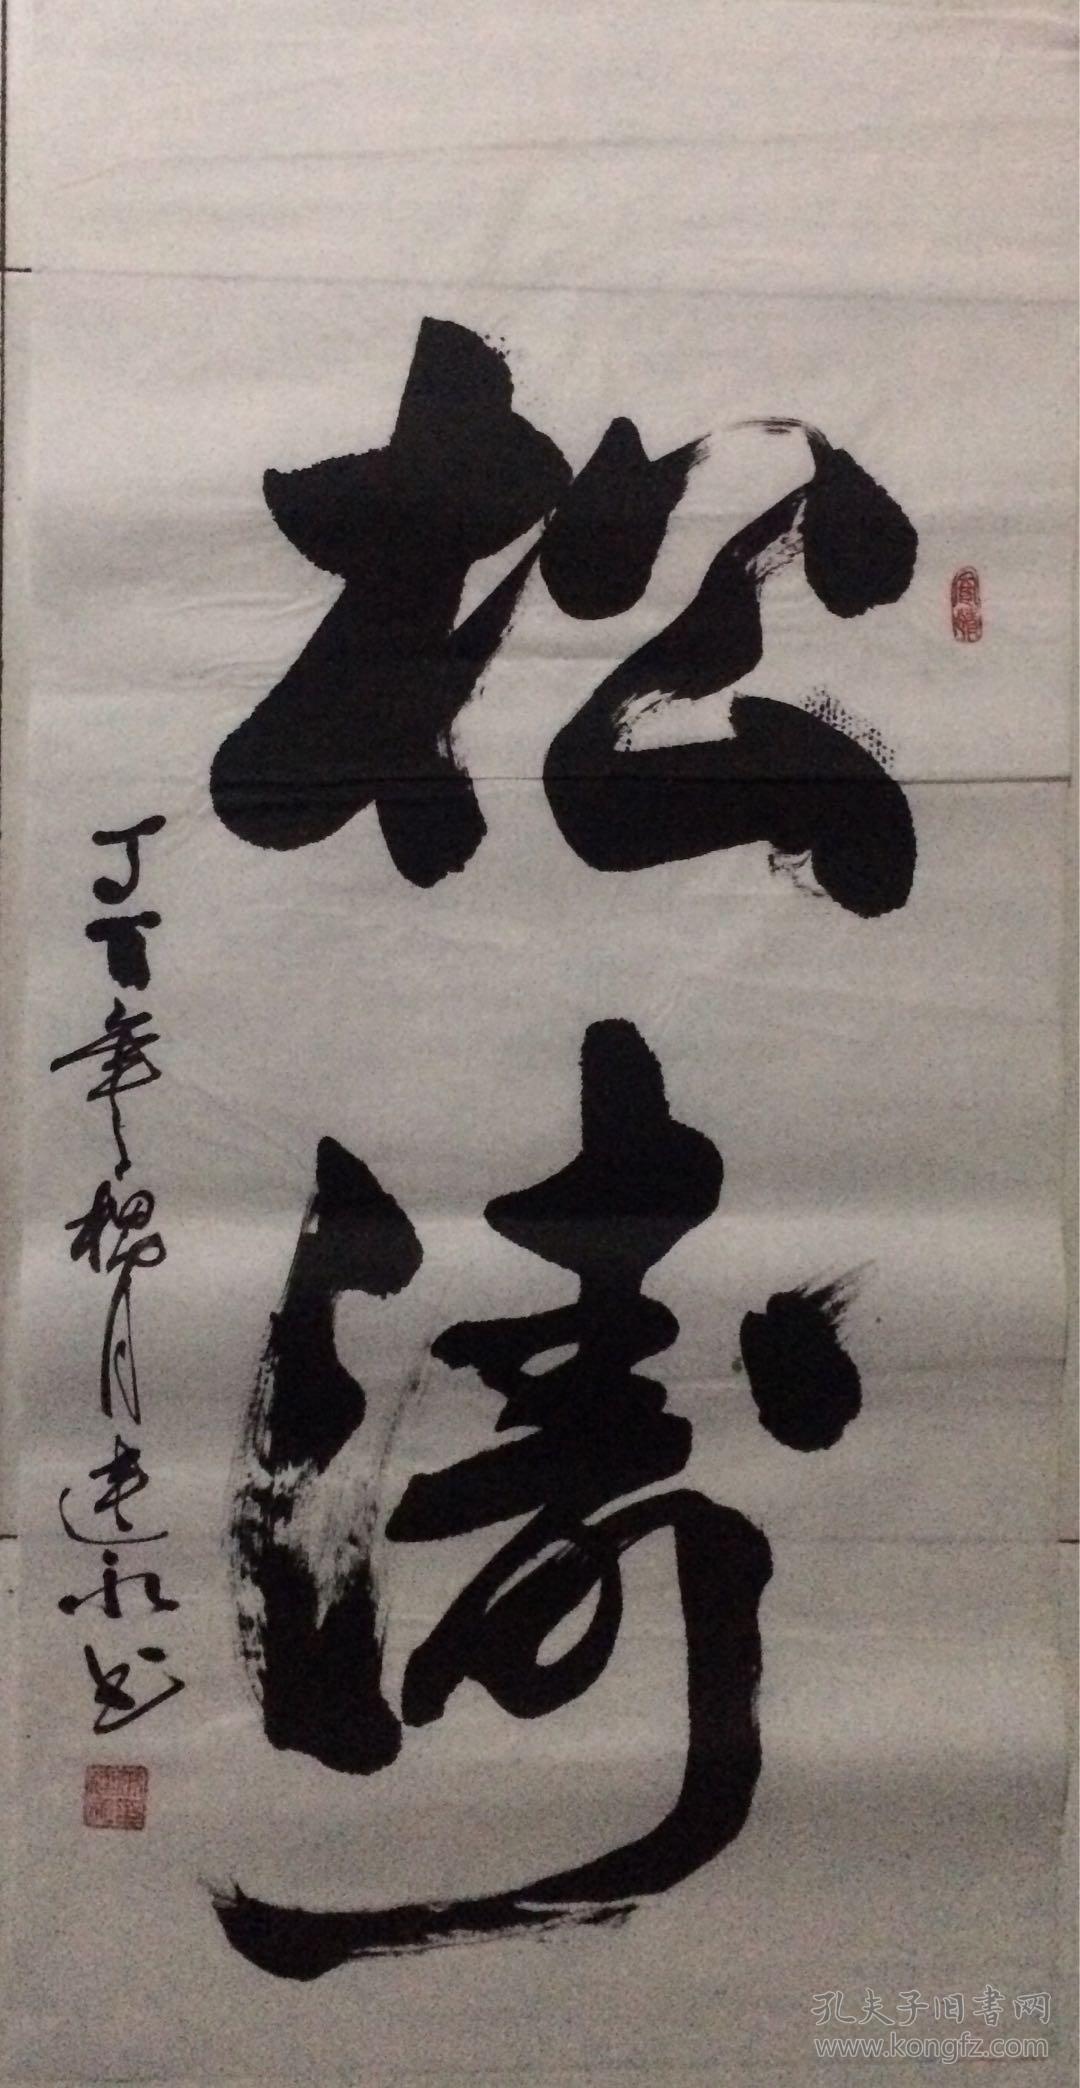 松涛
丁酉年槐月连永书
孔夫子旧书网
www.kongfz.com